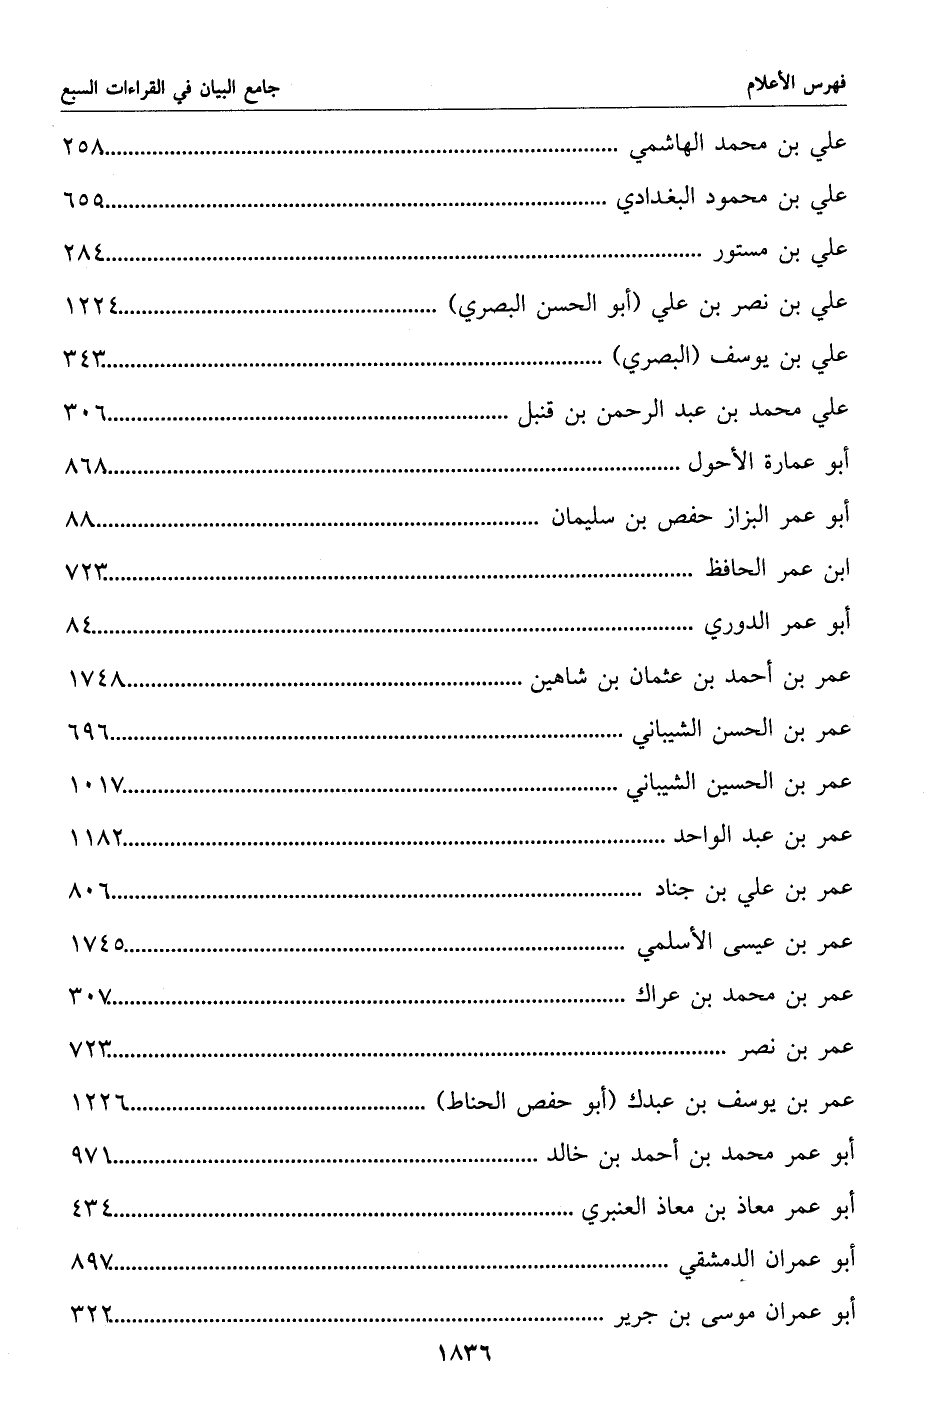 فهرس الأعلام جامع البيان في القراءات السبع
علي بن محمد الهاشمي ........ ٢٥٨
علي بن محمود البغدادي ........ ٦٥٥
علي بن مستور ........ ٢٨٤
علي بن نصر بن علي (أبو الحسن البصري) ........ ١٢٢٤
علي بن يوسف (البصري) ........ ٣٤٣
علي محمد بن عبد الرحمن بن قنبل ........ ٣٠٦
أبو عمارة الأحول ........ ٨٦٨
أبو عمر البزاز حفص بن سليمان ........ ٨٨
ابن عمر الحافظ ........ ٧٢٣
أبو عمر الدوري ........ ٨٤
عمر بن أحمد بن عثمان بن شاهين ........ ١٧٤٨
عمر بن الحسن الشيباني ........ ٦٩٦
عمر بن الحسين الشيباني ........ ١٠١٧
عمر بن عبد الواحد ........ ١١٨٢
عمر بن علي بن جناد ........ ٨٠٦
عمر بن عيسى الأسلمي ........ ١٧٤٥
عمر بن محمد بن عراك ........ ٣٠٧
عمر بن نصر ........ ٧٢٣
عمر بن يوسف بن عبدك (أبو حفص الحناط) ........ ١٢٢٦
أبو عمر محمد بن أحمد بن خالد ........ ٩٧١
أبو عمر معاذ بن معاذ العنبري ........ ٤٣٤
أبو عمران الدمشقي ........ ٨٩٧
أبو عمران موسى بن جرير ........ ٣٢٢
١٨٣٦